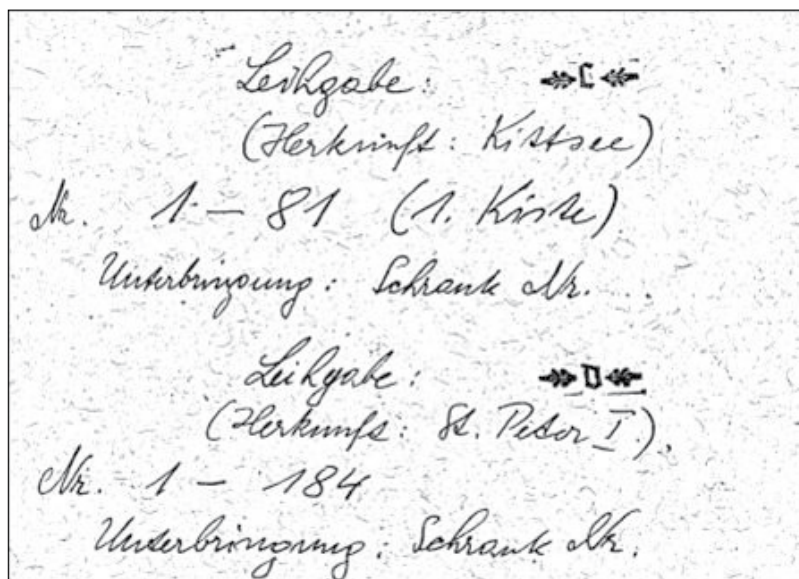 Leihgabe: C
(Herkunft: Kittsee)
Nr. 1 – 81 (1. Kiste)
Unterbringung: Schrank Nr. ...
Leihgabe: D
(Herkunft: St. Peter I.)
Nr. 1 – 184
Unterbringung: Schrank Nr.